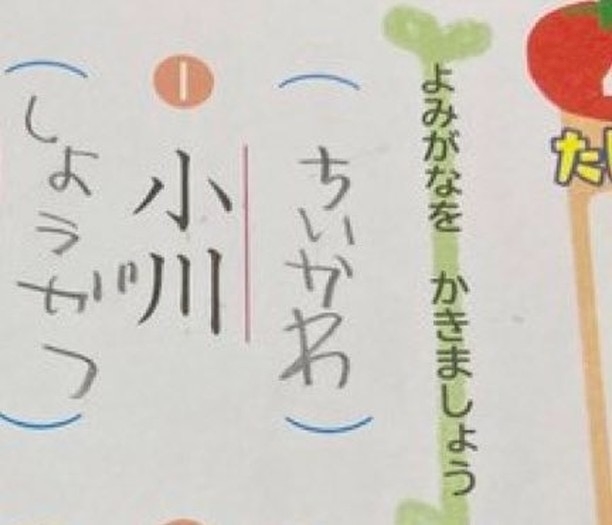 よみがなを かきましょう
ちいかわ
1
小川
しょうがつ